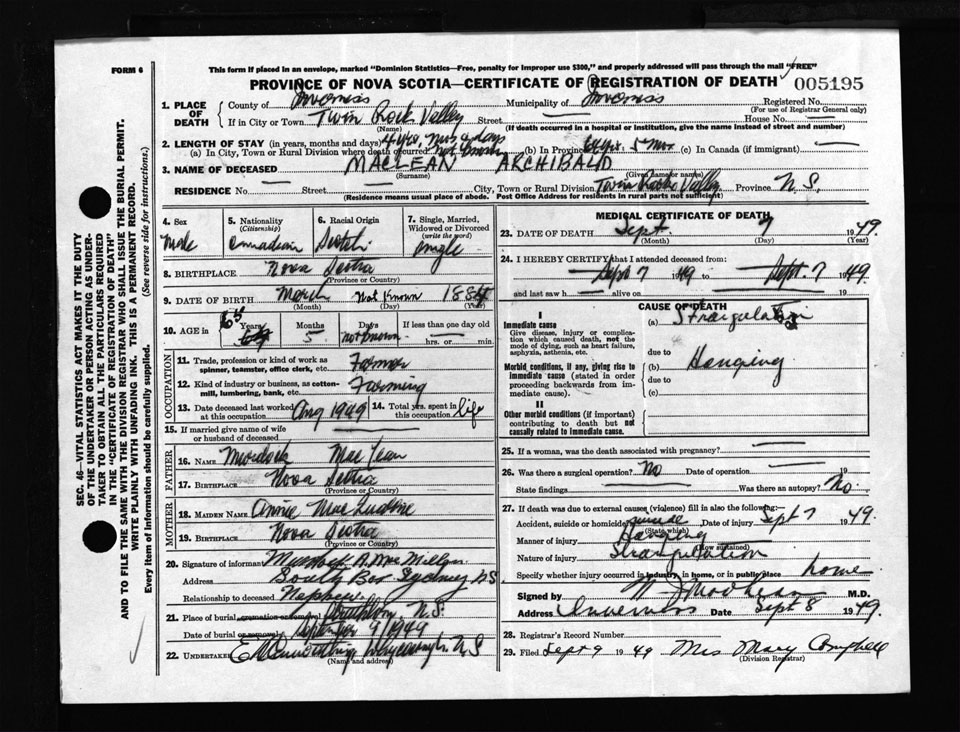 FORM 6
This form if placed in an envelope, marked "Dominion Statistics—Free, penalty for improper use $300," and properly addressed will pass through the mail "FREE"
PROVINCE OF NOVA SCOTIA—CERTIFICATE OF REGISTRATION OF DEATH
005195
1. PLACE OF DEATH
County of Inverness Municipality of Inverness Registered No.
(For use of Registrar General only)
If in City or Town Twin Rock Valley Street — House No. —
(Name) (If death occurred in a hospital or institution, give the name instead of street and number)
2. LENGTH OF STAY (in years, months and days)
(a) In City, Town or Rural Division where death occurred not known (b) In Province 64 yrs. 5 mos (c) In Canada (if immigrant) —
3. NAME OF DECEASED MACLEAN ARCHIBALD
(Surname) (Given name or names)
RESIDENCE No. — Street — City, Town or Rural Division Twin Rocks Valley Province N.S.
(Residence means usual place of abode. Post Office Address for residents in rural parts not sufficient)
4. Sex Male
5. Nationality (Citizenship) Canadian
6. Racial Origin Scotch
7. Single, Married, Widowed or Divorced (write the word) single
8. BIRTHPLACE Nova Scotia
(Province or Country)
9. DATE OF BIRTH March Not Known 1884
(Month) (Day) (Year)
10. AGE in 65 Years 5 Months not known Days If less than one day old hrs. or min.
OCCUPATION
11. Trade, profession or kind of work as spinner, teamster, office clerk, etc. Farmer
12. Kind of industry or business, as cotton-mill, lumbering, bank, etc. Farming
13. Date deceased last worked at this occupation Aug 1949
14. Total yrs. spent in this occupation life
15. If married give name of wife or husband of deceased —
FATHER
16. NAME Murdoch MacLean
17. BIRTHPLACE Nova Scotia
(Province or Country)
MOTHER
18. MAIDEN NAME Annie
19. BIRTHPLACE Nova Scotia
(Province or Country)
20. Signature of informant
Address South Bar Sydney NS
Relationship to deceased Nephew
21. Place of burial cremation or removal N.S.
Date of burial or removal September 9/1949
22. UNDERTAKER N S
(Name and address)
MEDICAL CERTIFICATE OF DEATH
23. DATE OF DEATH Sept. 7 1949
(Month) (Day) (Year)
24. I HEREBY CERTIFY that I attended deceased from:
Sept 7 1949 to Sept. 7 1949.
and last saw h alive on 19
CAUSE OF DEATH
I
Immediate cause
Give disease, injury or complication which caused death, not the mode of dying, such as heart failure, asphyxia, asthenia, etc.
(a) Strangulation
due to
Morbid conditions, if any, giving rise to immediate cause (stated in order proceeding backwards from immediate cause).
(b) Hanging
due to
(c)
II
Other morbid conditions (if important) contributing to death but not causally related to immediate cause.
25. If a woman, was the death associated with pregnancy? —
26. Was there a surgical operation? No Date of operation — 19
State findings — Was there an autopsy? No.
27. If death was due to external causes (violence) fill in also the following:—
Accident, suicide or homicide suicide Date of injury Sept 7 1949.
(State which)
Manner of injury Hanging
(How sustained)
Nature of injury Strangulation
Specify whether injury occurred in industry, in home, or in public place home
Signed by M.D.
Address Inverness Date Sept 8 1949.
28. Registrar's Record Number
29. Filed Sept 9 1949 Mrs Mary Campbell
(Division Registrar)
SEC. 46—VITAL STATISTICS ACT MAKES IT THE DUTY OF THE UNDERTAKER OR PERSON ACTING AS UNDERTAKER TO OBTAIN ALL THE PARTICULARS REQUIRED IN THE "CERTIFICATE OF REGISTRATION OF DEATH" AND TO FILE THE SAME WITH THE DIVISION REGISTRAR WHO SHALL ISSUE THE BURIAL PERMIT.
WRITE PLAINLY WITH UNFADING INK. THIS IS A PERMANENT RECORD.
Every item of information should be carefully supplied. (See reverse side for instructions.)